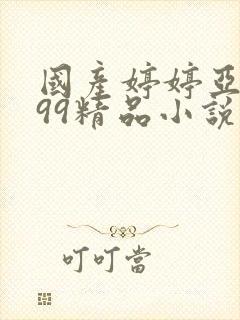 國產婷婷亞
99精品小說
叮叮當